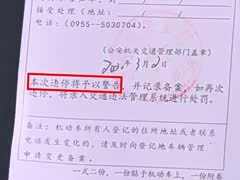 接受处理（0955-5030704）。
（公安机关交通管理部门盖章）
年3月2日
本次违停将予以警告，并记录备案，如再次
违停，将录入交通违法管理系统进行处罚。
备注：机动车所有人登记的住所地址或者联系
电话发生变化的，请及时向登记地车辆管理
申请变更备案。
一式二份，一份贴于机动车上，一份附卷